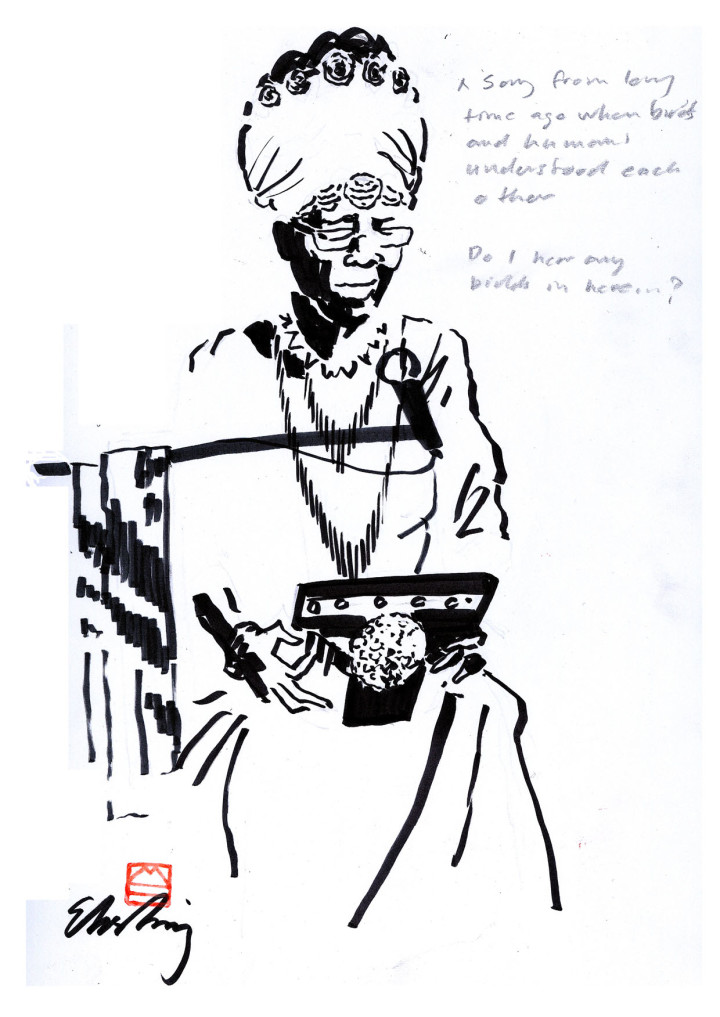 A song from long
time ago when birds
and humans
understood each
other
Do I hear any
birds in here...?